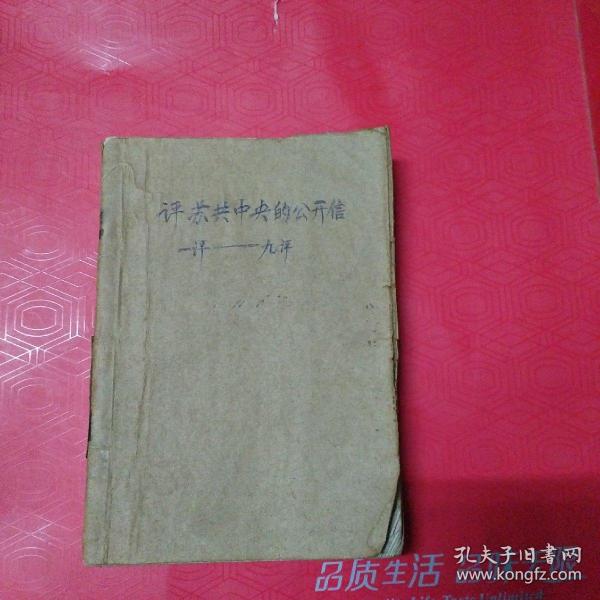 评苏共中央的公开信
一评——九评
品质生活
孔夫子旧书网
www.kongfz.com
Life Tests Unlimited